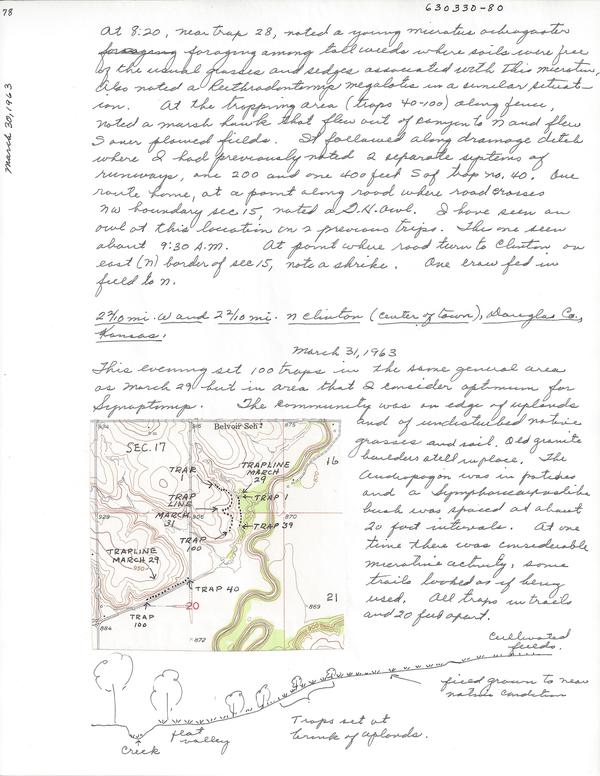 78
630330-80
March 30, 1963
At 8:20, near trap 28, noted a young microtus ochrogaster
foraging among tall weeds where soils were free
of the usual grasses and sedges associated with this microtus,
Also noted a Reithrodontomys megalotis in a similar situat-
ion. At the trapping area (traps 40-100) along fence,
noted a marsh hawk that flew out of canyon to N and flew
S over plowed fields. It followed along drainage ditch
where I had previously noted 2 separate systems of
runways, one 200 and one 400 feet S of trap no. 40. One
route home, at a point along road where road crosses
NW boundary sec 15, noted a G.H. owl. I have seen an
owl at this location on 2 previous trips. The one seen
about 9:30 A.M. At point where road turn to Clinton on
east (N) border of sec 15, note a shrike. One crow fed in
field to N.
2 2/10 mi. W and 2 2/10 mi. N Clinton (center of town), Douglas Co.,
Kansas.
March 31, 1963
This evening set 100 traps in the same general area
as March 29 but in area that I consider optimum for
Synaptomys. The community was on edge of uplands
and of undisturbed native
grasses and soil. Old granite
boulders still in place. The
Andropogon was in patches
and a Symphoricarpos like
bush was spaced at about
20 foot intervals. At one
time there was considerable
microtine activity, some
trails looked as if being
used. All traps in trails
and 20 feet apart.
934
916
Belvoir Sch
875
SEC. 17
16
TRAP 1
TRAPLINE MARCH 29
TRAP LINE MARCH 31
TRAP 1
929
906
870
TRAP 39
TRAP 100
TRAPLINE MARCH 29
950
TRAP 40
TRAP 100
20
869
21
884
872
Cultivated
fields.
field grown to near
native condition
Traps set at
brink of uplands.
flat
valley
Creek